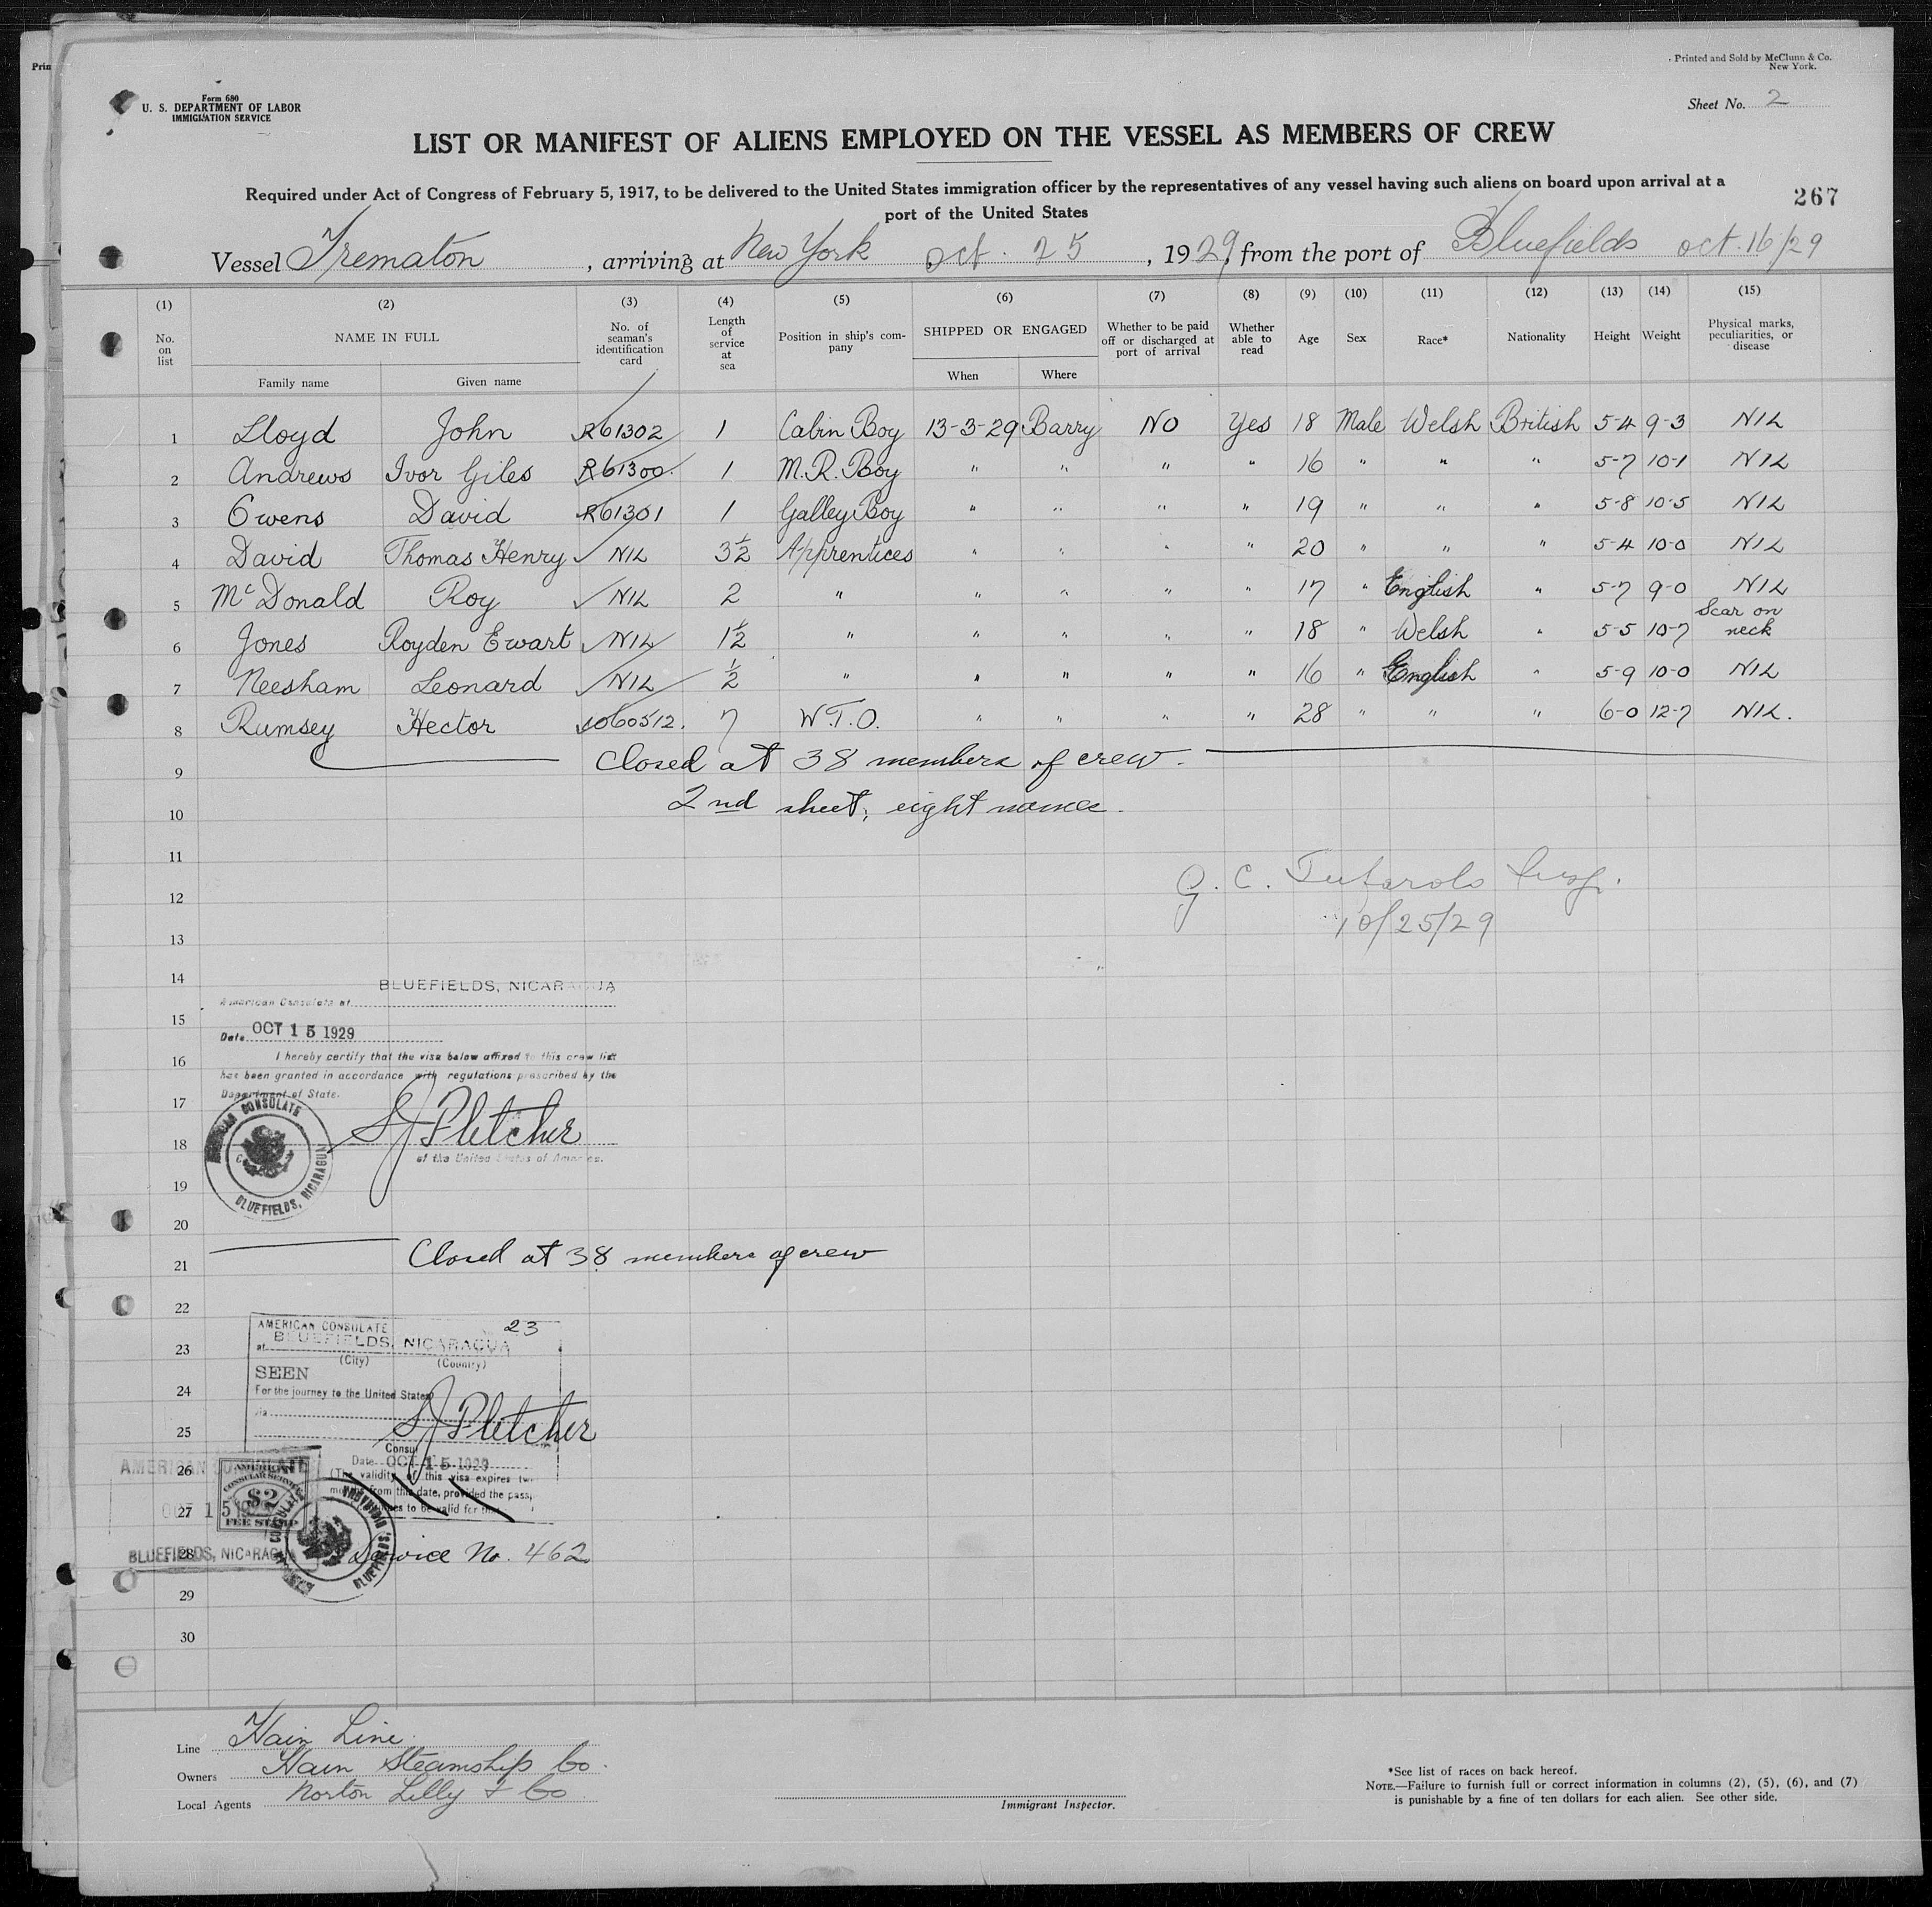 Prin
Printed and Sold by McClunn & Co.
New York.
Form 680
U. S. DEPARTMENT OF LABOR
IMMIGRATION SERVICE
Sheet No. 2
LIST OR MANIFEST OF ALIENS EMPLOYED ON THE VESSEL AS MEMBERS OF CREW
Required under Act of Congress of February 5, 1917, to be delivered to the United States immigration officer by the representatives of any vessel having such aliens on board upon arrival at a
port of the United States
267
Vessel Trematon, arriving at New York Oct. 25, 1929, from the port of Bluefields Oct. 16/29
(1) (2) (3) (4) (5) (6) (7) (8) (9) (10) (11) (12) (13) (14) (15)
No. on list
NAME IN FULL
Family name Given name
No. of seaman's identification card
Length of service at sea
Position in ship's company
SHIPPED OR ENGAGED
When Where
Whether to be paid off or discharged at port of arrival
Whether able to read
Age
Sex
Race*
Nationality
Height
Weight
Physical marks, peculiarities, or disease
1 Lloyd John R61302 1 Cabin Boy 13-3-29 Barry NO Yes 18 Male Welsh British 5-4 9-3 NIL
2 Andrews Ivor Giles R61300 1 M.R. Boy " " " " 16 " " " 5-7 10-1 NIL
3 Owens David R61301 1 Galley Boy " " " " 19 " " " 5-8 10-5 NIL
4 David Thomas Henry NIL 3½ Apprentices " " " " 20 " " " 5-4 10-0 NIL
5 McDonald Roy NIL 2 " " " " " 17 " English " 5-7 9-0 NIL
6 Jones Royden Ewart NIL 1½ " " " " " 18 " Welsh " 5-5 10-7 Scar on neck
7 Neesham Leonard NIL ½ " " " " " 16 " English " 5-9 10-0 NIL
8 Rumsey Hector 1060512. 7 W.T.O. " " " " 28 " " " 6-0 12-7 NIL.
9 Closed at 38 members of crew.
10 2nd sheet, eight names.
11
G. C. Insp.
12
10/25/29
13
14
BLUEFIELDS, NICARAGUA
American Consulate at
15
Date OCT 15 1929
16
I hereby certify that the visa below affixed to this crew list
has been granted in accordance with regulations prescribed by the
Department of State.
17
AMERICAN CONSULATE
BLUEFIELDS, NICARAGUA
SJ Fletcher
18
of the United States of America.
19
20
Closed at 38 members of crew
21
22
AMERICAN CONSULATE 23
at BLUEFIELDS, NICARAGUA
23
(City) (Country)
SEEN
24
For the journey to the United States
via
SJ Fletcher
25
Consul
Date OCT 15 1929
26
(The validity of this visa expires
from this date, provided the
to be valid for
AMERICAN CONSULATE
AMERICAN
CONSULAR SERVICE
$2
FEE STAMP
27
OCT 15 1929
28
BLUEFIELDS, NICARAGUA
BLUEFIELDS, NICARAGUA
Service No. 462
29
30
Line Hain Line
Owners Hain Steamship Co.
Local Agents Norton Lilly & Co
Immigrant Inspector.
*See list of races on back hereof.
NOTE.—Failure to furnish full or correct information in columns (2), (5), (6), and (7)
is punishable by a fine of ten dollars for each alien. See other side.